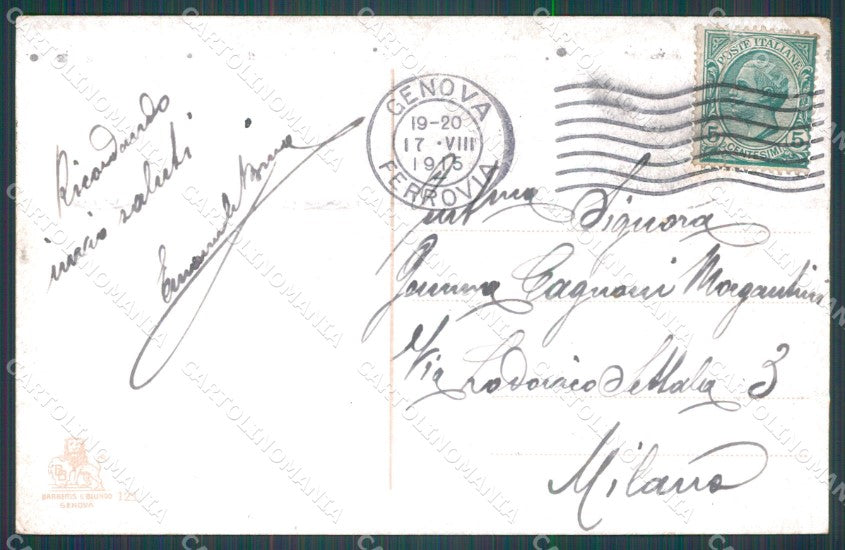 Ricordando
invio saluti
GENOVA
19-20
17 · VIII
1915
FERROVIA
POSTE ITALIANE
5 CENTESIMI 5
Signora
Gemma Cagnoni Morgantini
Via Lodovico Settala 3
Milano
BARBERIS E BLONDO
GENOVA
CARTOLINOMANIA